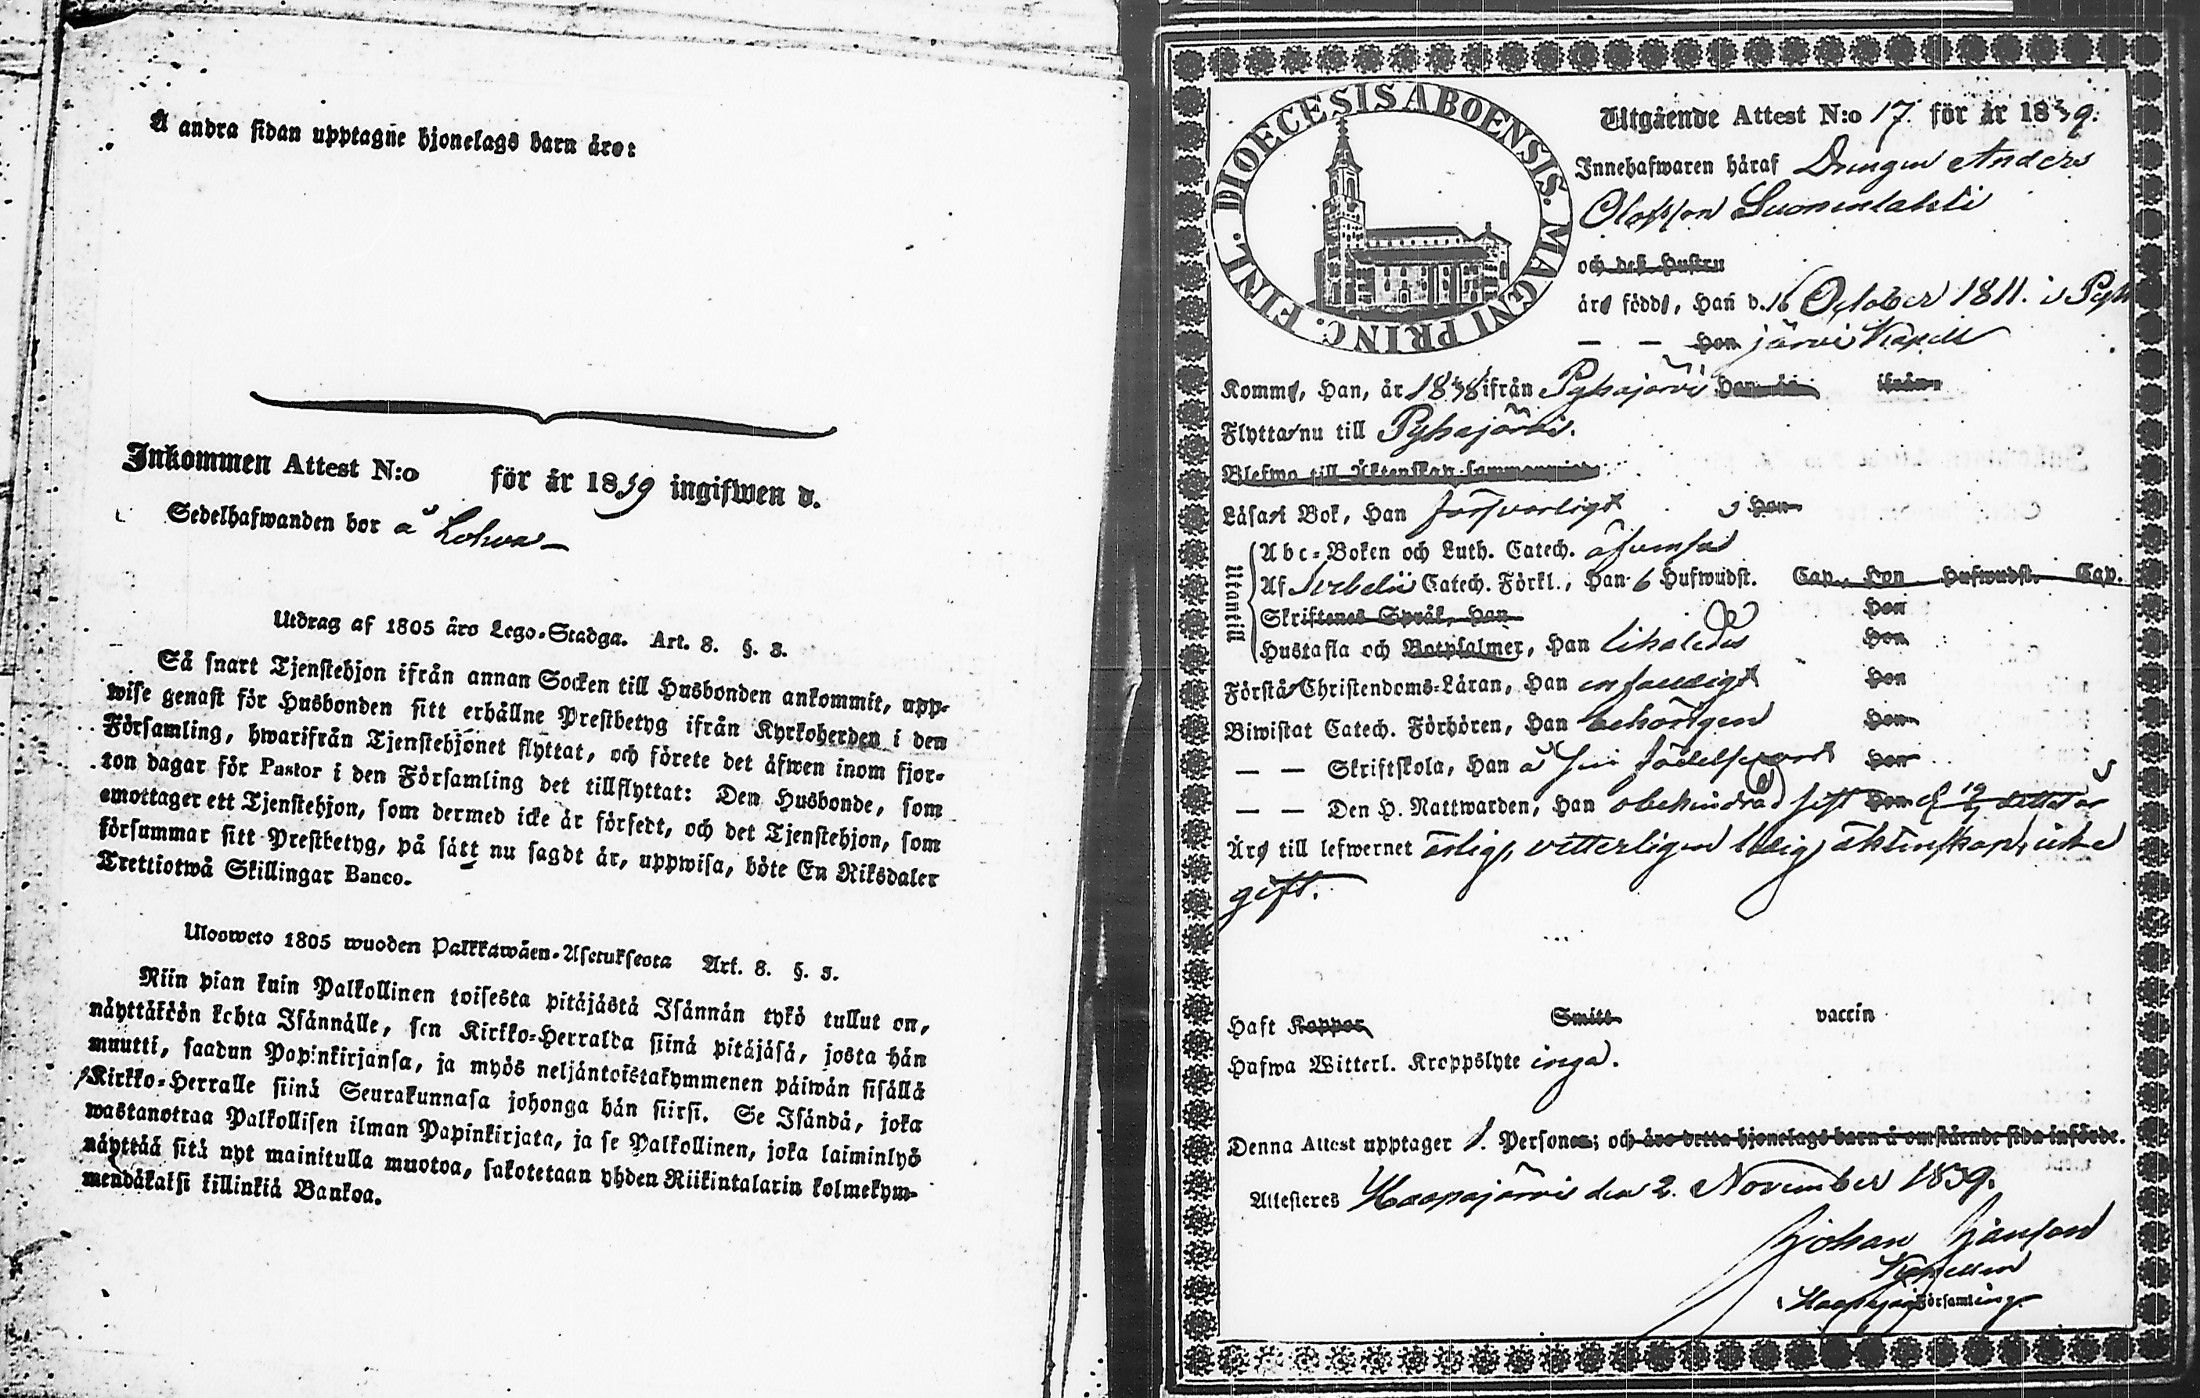 Å andra sidan upptagne hjonelags barn äro:
Inkommen Attest N:o för år 1839 ingifwen d.
Sedelhafwanden bor å Lohva
Utdrag af 1805 års Lego-Stadga. Art. 8. §. 3.
Så snart Tjenstehjon ifrån annan Socken till Husbonden ankommit, upp-
wise genast för Husbonden sitt erhållne Prestbetyg ifrån Kyrkoherden i den
Församling, hwarifrån Tjenstehjonet flyttat, och förete det äfwen inom fjor-
ton dagar för Pastor i den Församling det tillflyttat: Den Husbonde, som
emottager ett Tjenstehjon, som dermed icke är försedt, och det Tjenstehjon, som
försummar sitt Prestbetyg, på sätt nu sagdt är, uppwisa, böte En Riksdaler
Trettiotwå Skillingar Banco.
Ulosweto 1805 wuoden Palkkawäen-Asetuksesta Art. 8. §. 3.
Niin pian kuin Palkollinen toisesta pitäjästä Isännän tykö tullut on,
näyttäköön kohta Isännälle, sen Kirkko-Herralda siinä pitäjäsä, josta hän
muutti, saadun Papinkirjansa, ja myös neljäntoistakymmenen päiwän sisällä
Kirkko-Herralle siinä Seurakunnasa johonga hän siirsi. Se Isändä, joka
wastanottaa Palkollisen ilman Papinkirjata, ja se Palkollinen, joka laiminlyö
näyttää sitä nyt mainitulla muotoa, sakotetaan yhden Riikintalarin kolmekym-
mendäkaksi killinkiä Bankoa.
DIOECESIS ABOENSIS. MAGNI PRINC. FINL.
Utgående Attest N:o 17 för år 1839.
Innehafwaren häraf Drengen Anders
Olofsson Suomenlahti
och deß hustru
äro födde, Han d. 16 October 1811. i Pyhä
— — Hon järvi Kapell
Komme, Han, år 1838 ifrån Pyhäjärvi Hon år ifrån
Flytta nu till Pyhäjärvi.
Blefwo till Äktenskap sammanwigde
Läsa i Bok, Han försvarligt Hon
Utantill
Abc-Boken och Luth. Catech. äfvenså
Af Svebelii Catech. Förkl., Han 6 Hufwudst. Cap., Hon Hufwudst. Cap.
Skriftenes Språk, Han Hon
Hustafla och Botpsalmer, Han likaledes Hon
Förstå Christendoms-Läran, Han enfaldigt Hon
Biwistat Catech. Förhören, Han behörigen Hon
— — Skriftskola, Han å sin födelseort Hon
— — Den H. Nattwarden, Han obehindrad sist Hon d.
Äro till lefwernet ärlig, vetterligen ledig äktenskap, icke
gift.
Haft Koppor Smitt- vaccin
Hafwa Witterl. Kroppslyte inga.
Denna Attest upptager 1. Personer; och äro detta hjonelags barn å omstående sida införde.
Attesteras Haapajärvi den 2. November 1839.
Johan Janson
Capellan
i Haapajärvi Församling.